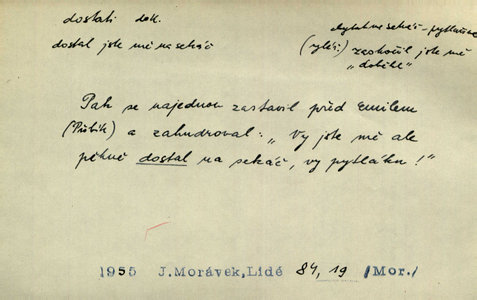 dostati dok.
dostal jste mě na sekáč
(rylěř:) zaskočil jste mě
„doběhl"
Pak se najednou zastavil před Emilem
a zahudroval: „Vy jste mě ale
pěkně dostal na sekáč, vy pytláku!"
1955 J.Morávek,Lidé 84, 19 /Mor./